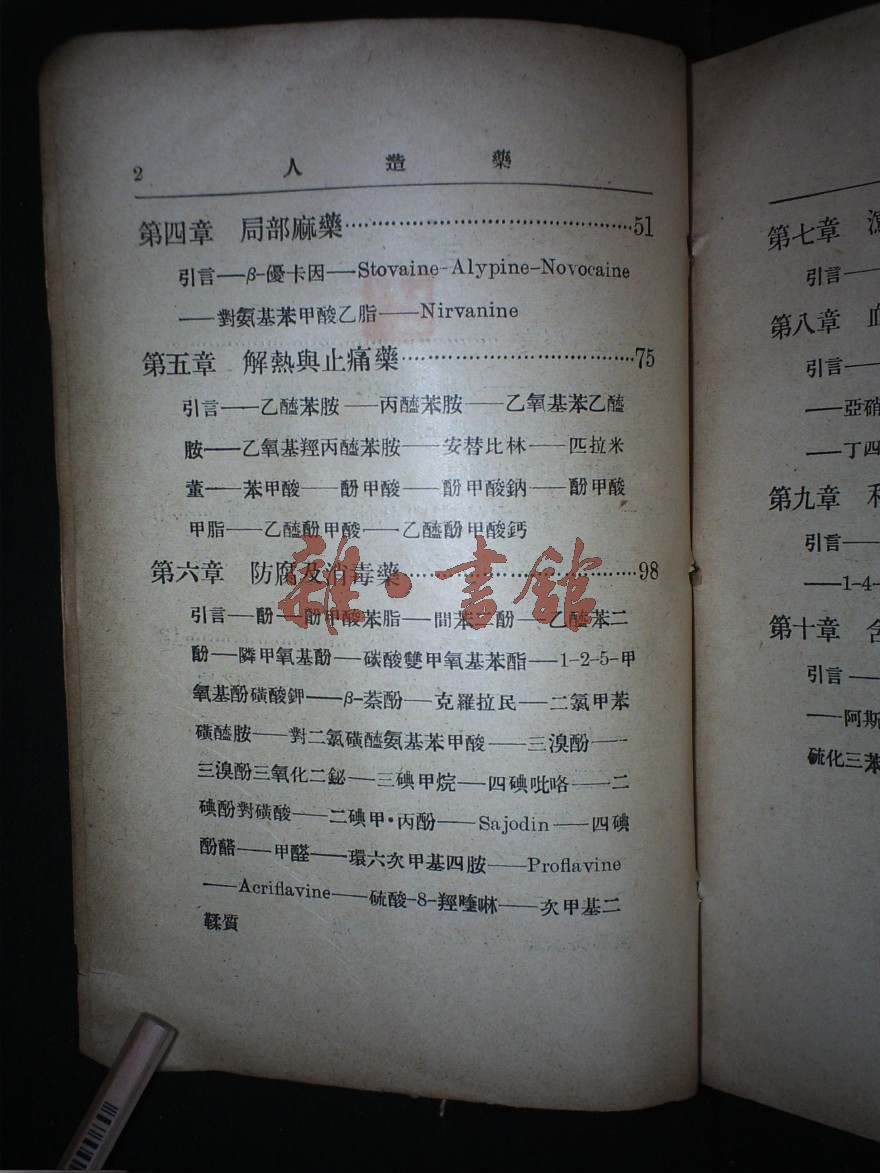 2 人造藥
第四章 局部麻藥……………………………51
引言——β-優卡因——Stovaine-Alypine-Novocaine
——對氨基苯甲酸乙脂——Nirvanine
第五章 解熱與止痛藥………………………75
引言——乙醯苯胺——丙醯苯胺——乙氧基苯乙醯
胺——乙氧基羥丙醯苯胺——安替比林——匹拉米
董——苯甲酸——酚甲酸——酚甲酸鈉——酚甲酸
甲脂——乙醯酚甲酸——乙醯酚甲酸鈣
第六章 防腐及消毒藥………………………98
引言——酚——酚甲酸苯脂——間苯二酚——乙醯苯二
酚——隣甲氧基酚——碳酸雙甲氧基苯酯——1-2-5-甲
氧基酚磺酸鉀——β-萘酚——克羅拉民——二氯甲苯
磺醯胺——對二氯磺醯氨基苯甲酸——三溴酚——
三溴酚三氧化二鉍——三碘甲烷——四碘吡咯——二
碘酚對磺酸——二碘甲·丙酚——Sajodin——四碘
酚醛——甲醛——環六次甲基四胺——Proflavine
——Acriflavine——硫酸-8-羥喹啉——次甲基二
鞣質
雜·書館
第七章
引言——
第八章
引言——
——亞硝
——丁四
第九章
引言——
——1-4-
第十章 含
引言——
——阿斯
硫化三苯